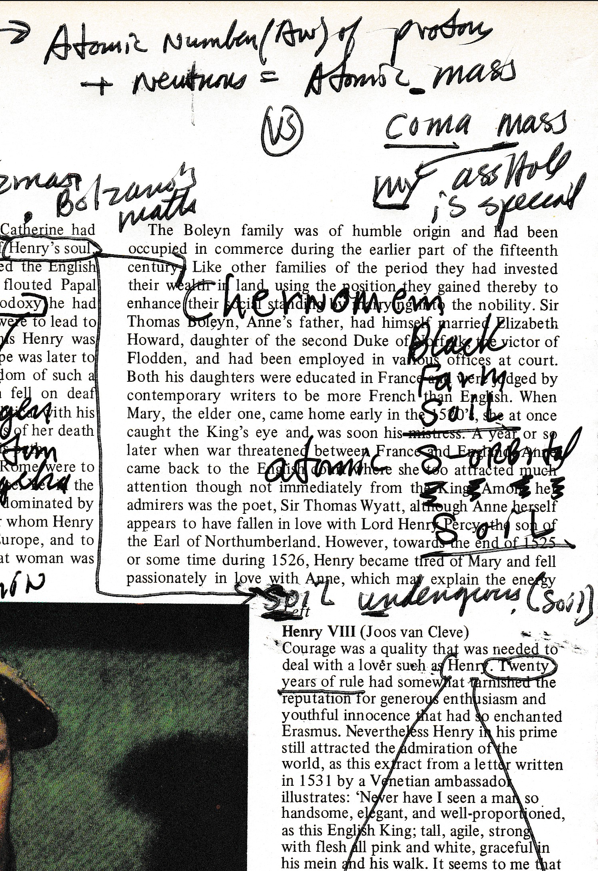 Atomic Number (AW) of proton
+ Neutrons = Atomic mass
VS
coma mass
my asshole
is special
Bolzano's
maths
Catherine had
Henry's soul,
ed the English
flouted Papal
odoxy he had
were to lead to
s Henry was
pe was later to
dom of such a
fell on deaf
with his
s of her death
Rome were to
the
dominated by
r whom Henry
Europe, and to
at woman was
The Boleyn family was of humble origin and had been
occupied in commerce during the earlier part of the fifteenth
century. Like other families of the period they had invested
their wealth in land, using the position they gained thereby to
enhance their social standing by marrying into the nobility. Sir
Thomas Boleyn, Anne's father, had himself married Elizabeth
Howard, daughter of the second Duke of Norfolk, the victor of
Flodden, and had been employed in various offices at court.
Both his daughters were educated in France and were judged by
contemporary writers to be more French than English. When
Mary, the elder one, came home early in the she at once
caught the King's eye and was soon his mistress. A year or so
later when war threatened between France and England Anne
came back to the English court where she too attracted much
attention though not immediately from the King. Among her
admirers was the poet, Sir Thomas Wyatt, although Anne herself
appears to have fallen in love with Lord Henry Percy, the son of
the Earl of Northumberland. However, towards the end of 1525
or some time during 1526, Henry became tired of Mary and fell
passionately in love with Anne, which may explain the energy
Chernomem
Black
Farm
Soil
atomic S orbital
Soil
Soil undengous (soil)
Left
Henry VIII (Joos van Cleve)
Courage was a quality that was needed to
deal with a lover such as Henry. Twenty
years of rule had somewhat tarnished the
reputation for generous enthusiasm and
youthful innocence that had so enchanted
Erasmus. Nevertheless Henry in his prime
still attracted the admiration of the
world, as this extract from a letter written
in 1531 by a Venetian ambassador
illustrates: 'Never have I seen a man so
handsome, elegant, and well-proportioned,
as this English King; tall, agile, strong
with flesh all pink and white, graceful in
his mein and his walk. It seems to me that